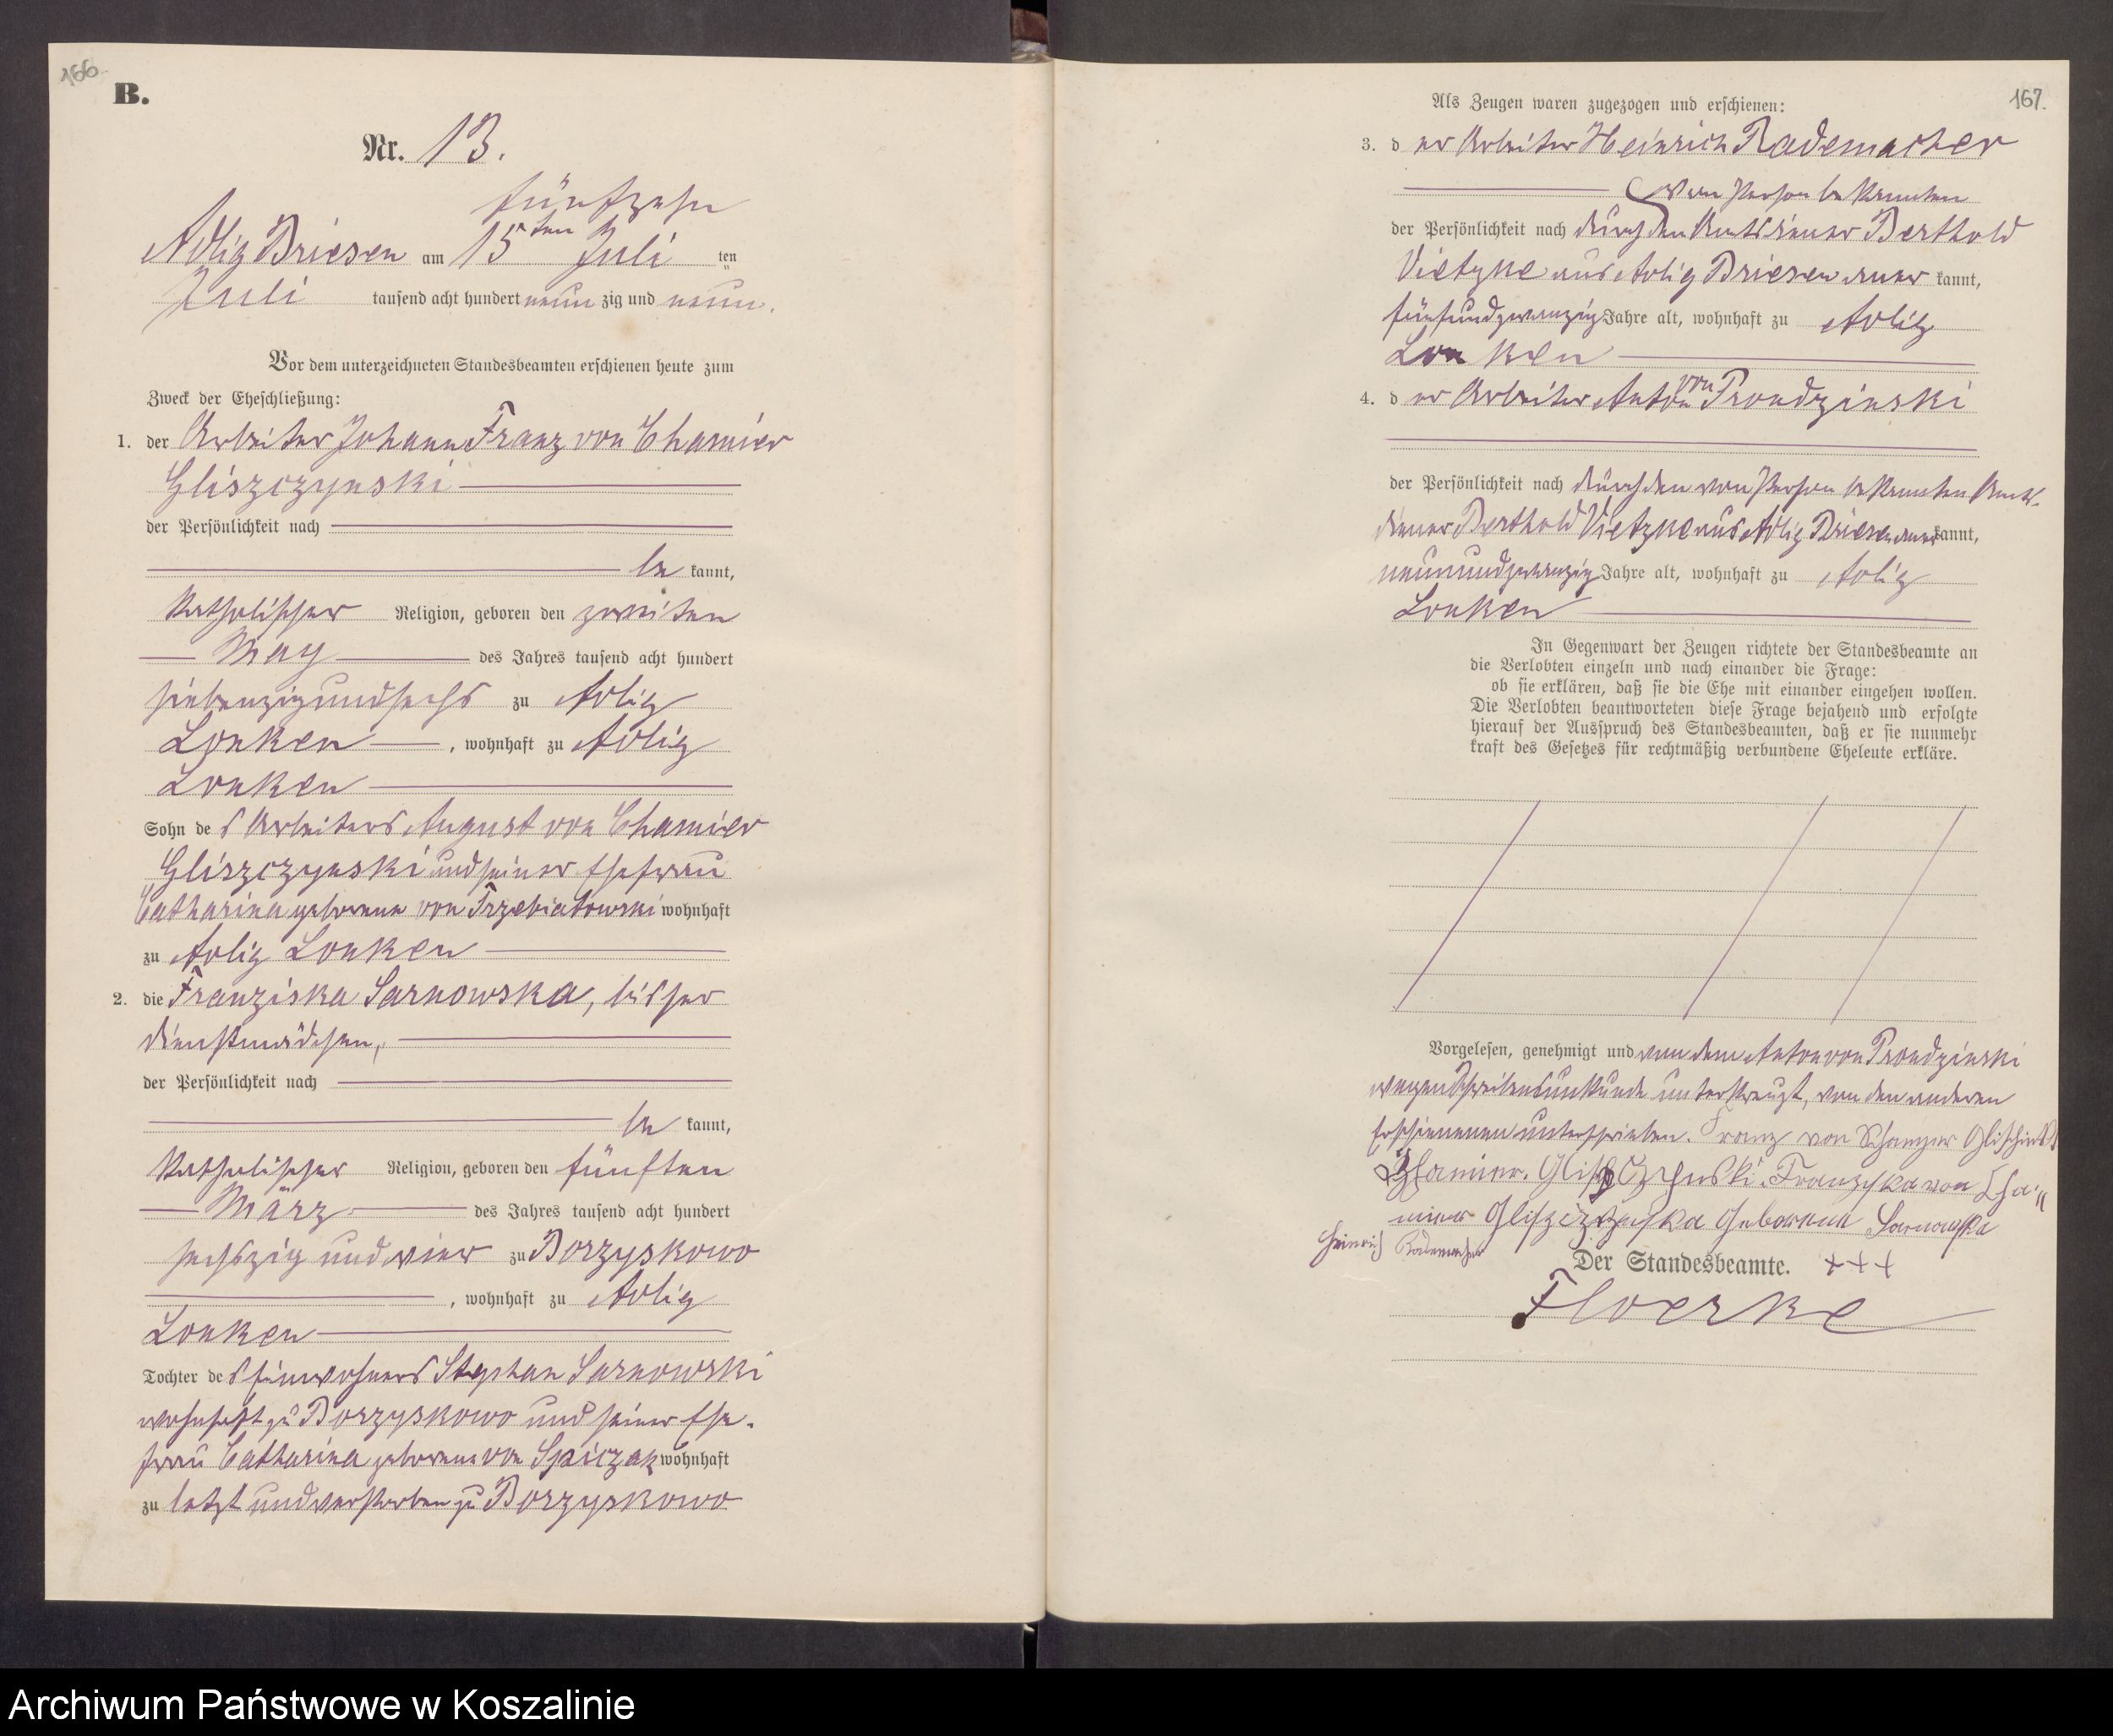 166
B.
Nr. 13.
fünfzehn
Adlig Briesen am 15ten Juli ten
Juli tausend acht hundert neun zig und neun.
Vor dem unterzeichneten Standesbeamten erschienen heute zum
Zweck der Eheschließung:
1. der Arbeiter Johann Franz von Chamier
Gliszczynski
der Persönlichkeit nach
be kannt,
katholischer Religion, geboren den zweiten
May des Jahres tausend acht hundert
siebenzig und sechs zu Adlig
Lonken, wohnhaft zu Adlig
Lonken
Sohn des Arbeiters August von Chamier
Gliszczynski und seiner Ehefrau
Catharina geborene von Trzebiatowski wohnhaft
zu Adlig Lonken
2. die Franziska Sarnowska, bisher
Dienstmädchen,
der Persönlichkeit nach
be kannt,
katholischer Religion, geboren den fünften
März des Jahres tausend acht hundert
sechszig und vier zu Borzyskowo
, wohnhaft zu Adlig
Lonken
Tochter des Einwohners Stephan Sarnowski
wohnhaft zu Borzyskowo und seiner Ehe-
frau Catharina geborene von Spiczak wohnhaft
zu letzt und verstorben zu Borzyskowo
167.
Als Zeugen waren zugezogen und erschienen:
3. der Arbeiter Heinrich Rademacher
von Person bekannten
der Persönlichkeit nach durch den Amtsdiener Berthold
Vietzke aus Adlig Briesen aner kannt,
fünfundzwanzig Jahre alt, wohnhaft zu Adlig
Lonken
4. der Arbeiter Anton von Prondzinski
der Persönlichkeit nach durch den von Person bekannten Amts-
diener Berthold Vietzke aus Adlig Briesen aner kannt,
neunundzwanzig Jahre alt, wohnhaft zu Adlig
Lonken
In Gegenwart der Zeugen richtete der Standesbeamte an
die Verlobten einzeln und nach einander die Frage:
ob sie erklären, daß sie die Ehe mit einander eingehen wollen.
Die Verlobten beantworteten diese Frage bejahend und erfolgte
hierauf der Ausspruch des Standesbeamten, daß er sie nunmehr
kraft des Gesetzes für rechtmäßig verbundene Eheleute erkläre.
Vorgelesen, genehmigt und von dem Anton von Prondzinski
wegen Schreibensunkunde unterkreuzt, von den anderen
Erschienenen unterschrieben. Franz von
Chamier. Franziska von Cha-
mier Gliszczynska Geborene Sarnowska
Heinrich Rademacher
Der Standesbeamte. +++
Floerke
Archiwum Państwowe w Koszalinie